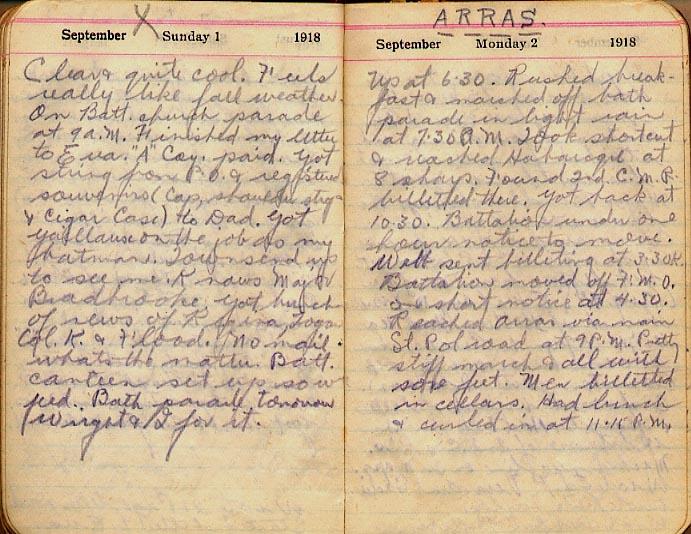 X
September Sunday 1 1918
Clear & quite cool. Feels
really like fall weather.
On Batt. church parade
at 9 a.m. Finished my letter
to Eva. "A" Coy. paid. Got
string from P.O. & registered
souvenirs (Cap, shoulder
& Cigar Case) to Dad. Got
on the job as my
batman. Townsend up
to see me. Knows Major
Bradbrooke. Got bunch
of news of Regina
Col. K. & Flood. No mail
whats the matter. Batt.
canteen set up so
Bath parade tomorrow
Wright & I for it.
ARRAS.
September Monday 2 1918
Up at 6.30. Rushed break-
fast & marched off bath
parade in light rain
at 7.30 A.M. Took shortcut
& reached at
8 sharp. Found 2nd C.M.R.
billetted there. Got back at
10.30. Battalion under one
hour notice to move.
Watt sent billeting at 3.30.
Battalion moved off F.M.O.
on short notice at 4.30.
Reached Arras via main
St. Pol road at 9 P.M. Pretty
stiff march & all with
sore feet. Men billetted
in cellars. Had lunch
& curled in at 11.15 P.M.